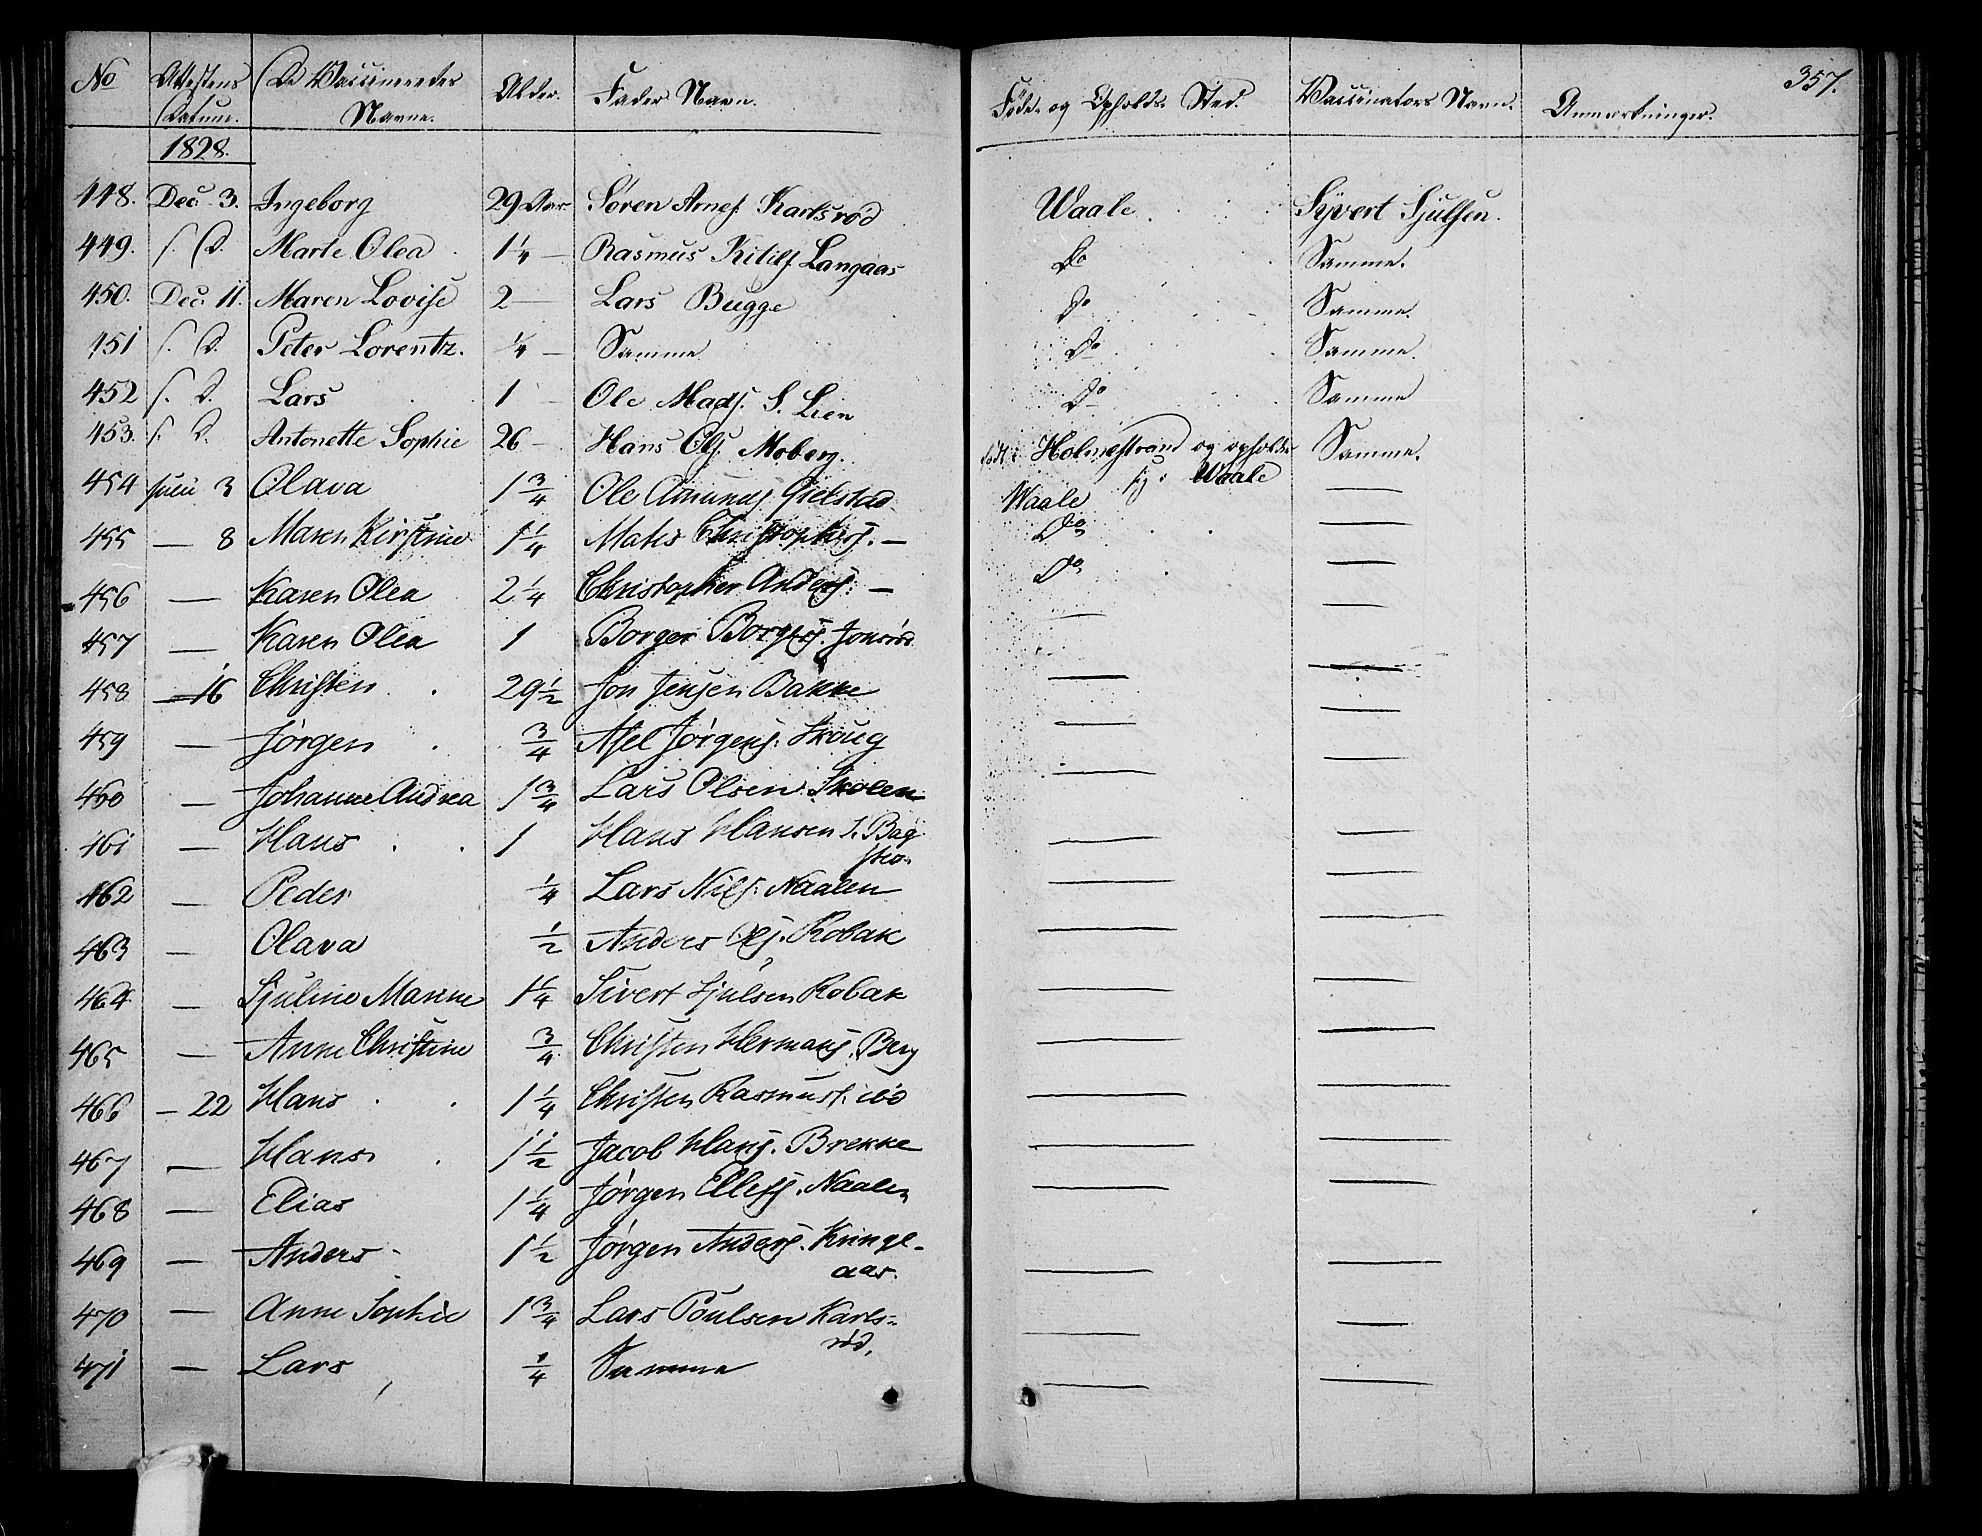 No Attestens Datum. De Vaccineredes Navne. Alder. Fader Navn. Føde- og Opholds- Sted. Vaccinators Navn. Anmærkninger. 357.
1828.
448. Dec. 3. Ingeborg 29 Aar Søren Arnes. Karlsrød Waale Syvert Sjulsen.
449. s. D. Marte Olea 1 1/4 — Rasmus Kitils. Langaas Do Samme.
450. Dec. 11. Maren Lovise 2 — Lars Bugge Do Samme.
451 s. D. Peter Lorentz. 1/4 — Samme Do Samme.
452 s. D. Lars 1 — Ole Mads. S. Lien Do Samme
453. s. D. Antonette Sophie 26 — Hans Ols. Moberg. født i Holmestrand og opholder Samme.
sig i Waale
454 3 Olava 1 3/4 Ole Amunds. Waale —
455 — 8 Maren Kirstine 1 1/4 Mates Christophers. — Do —
456 — Karen Olea 2 1/4 Christopher Anders: — Do —
457 — Karen Olea 1 Borger Borgers. Jonsrød — —
458 — 16 Christen 29 1/2 Jon Jensen Bakke — —
459 — Jørgen 3/4 Axel Jørgens. Skoug — —
460 — Johanne Andrea 1 3/4 Lars Olsen Skolen — —
461 — Hans 1 Hans Hansen — —
462 — Peder 1/4 Lars Nils. Naalen — —
463 — Olava 1/2 Anders Ols. Robak — —
464 — Sjuline Marine 1 1/4 Sivert Sjulsen Robak — —
465 — Anne Christine 3/4 Christen Hermans. Berg — —
466 — 22 Hans 1 1/4 Christen Rasmus. — —
467 — Hans 1 1/2 Jacob Hans. Brekke — —
468 — Elias 1 1/4 Jørgen Ellefs. Naalen — —
469 — Anders 1 1/2 Jørgen Anders. Kringl-
aas. — —
470 — Anne Sophie 1 3/4 Lars Poulsen Karls-
rød. — —
471 — Lars 1/4 Samme — —